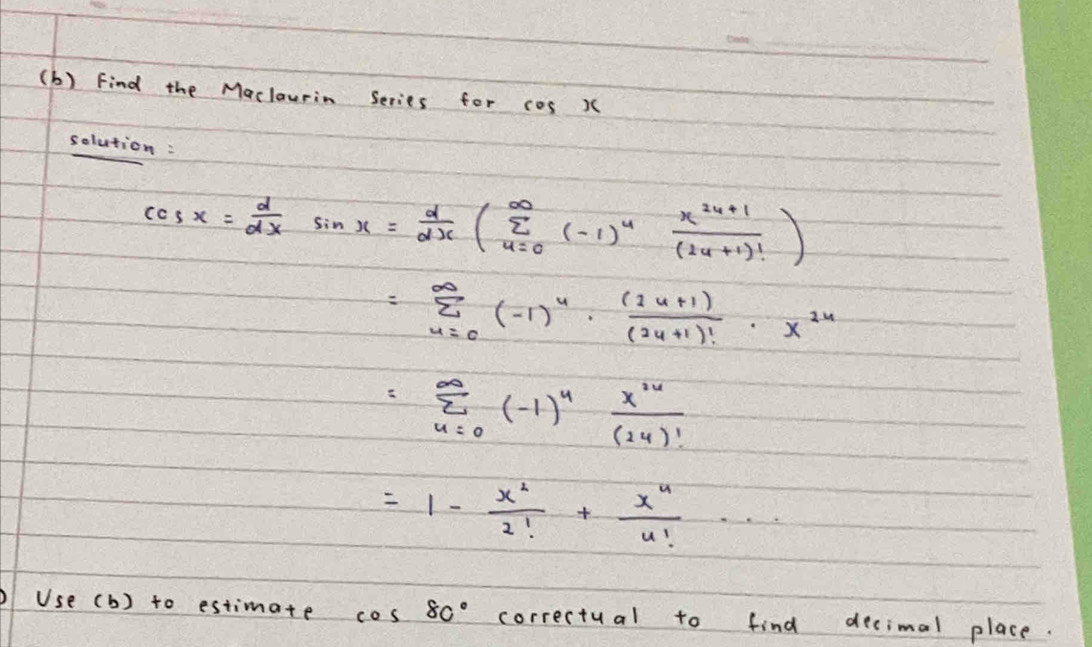 (b) Find the Maclaurin Series for cos x
solution :
cos x = d/dx sin x = d/dx ( ∞ Σ n=0 (-1)^n x^(2n+1) / (2n+1)! )
= ∞ Σ n=0 (-1)^n . (2n+1) / (2n+1)! . x^(2n)
= ∞ Σ n=0 (-1)^n x^(2n) / (2n)!
= 1 - x^2 / 2! + x^4 / 4! ...
) Use (b) to estimate cos 80° correctual to find decimal place.